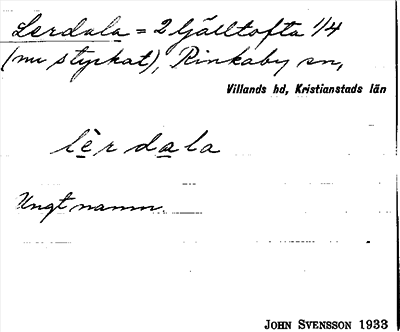 Lerdala = 2 Gälltofta 1/4
(nu styckat), Rinkaby sn,
Villands hd, Kristianstads län
lèrdala
Ungt namn.
JOHN SVENSSON 1933